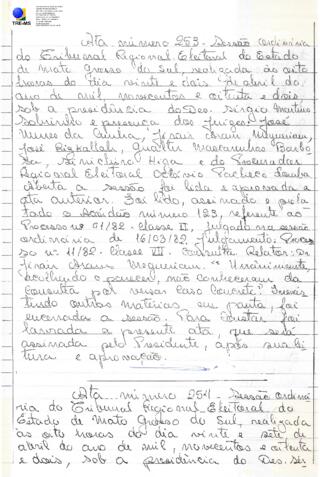 TRE-MS
Ata número 253 - Sessão ordinária
do Tribunal Regional Eleitoral do Estado
de Mato Grosso do Sul, realizada às oito
horas do dia vinte e dois de abril do
ano de mil, novecentos e oitenta e dois,
sob a presidência do Des. Sérgio Martins
Sobrinho e presença dos Juízes José
Nunes da Cunha, Jirair Aram Meguerian,
José Rizkallah, Gualter Mascarenhas Barbo
sa, Higa e do Procurador
Regional Eleitoral Octávio Pacheco Lomba
Aberta a sessão foi lida e aprovada a
ata anterior. Foi lido, assinado e publi
cado o Acórdão número 123, referente ao
Processo nº 01/82 - Classe VII, julgado na sessão
ordinária de 16/03/82. Julgamento: Proces
so nº 11/82 - Classe VII. Consulta Relator: Dr.
Jirair Aram Meguerian. "Unanimemente,
acolhendo o parecer, não conheceram da
consulta por versar caso concreto." Inexis
tindo outras matérias em pauta, foi
encerrada a sessão. Para constar foi
lavrada a presente ata que será
assinada pelo Presidente, após sua lei
tura e aprovação.
Ata número 254 - Sessão ordiná
ria do Tribunal Regional Eleitoral do
Estado de Mato Grosso do Sul, realizada
às oito horas do dia vinte e sete de
abril do ano de mil, novecentos e oitenta
e dois, sob a presidência do Des. Sér